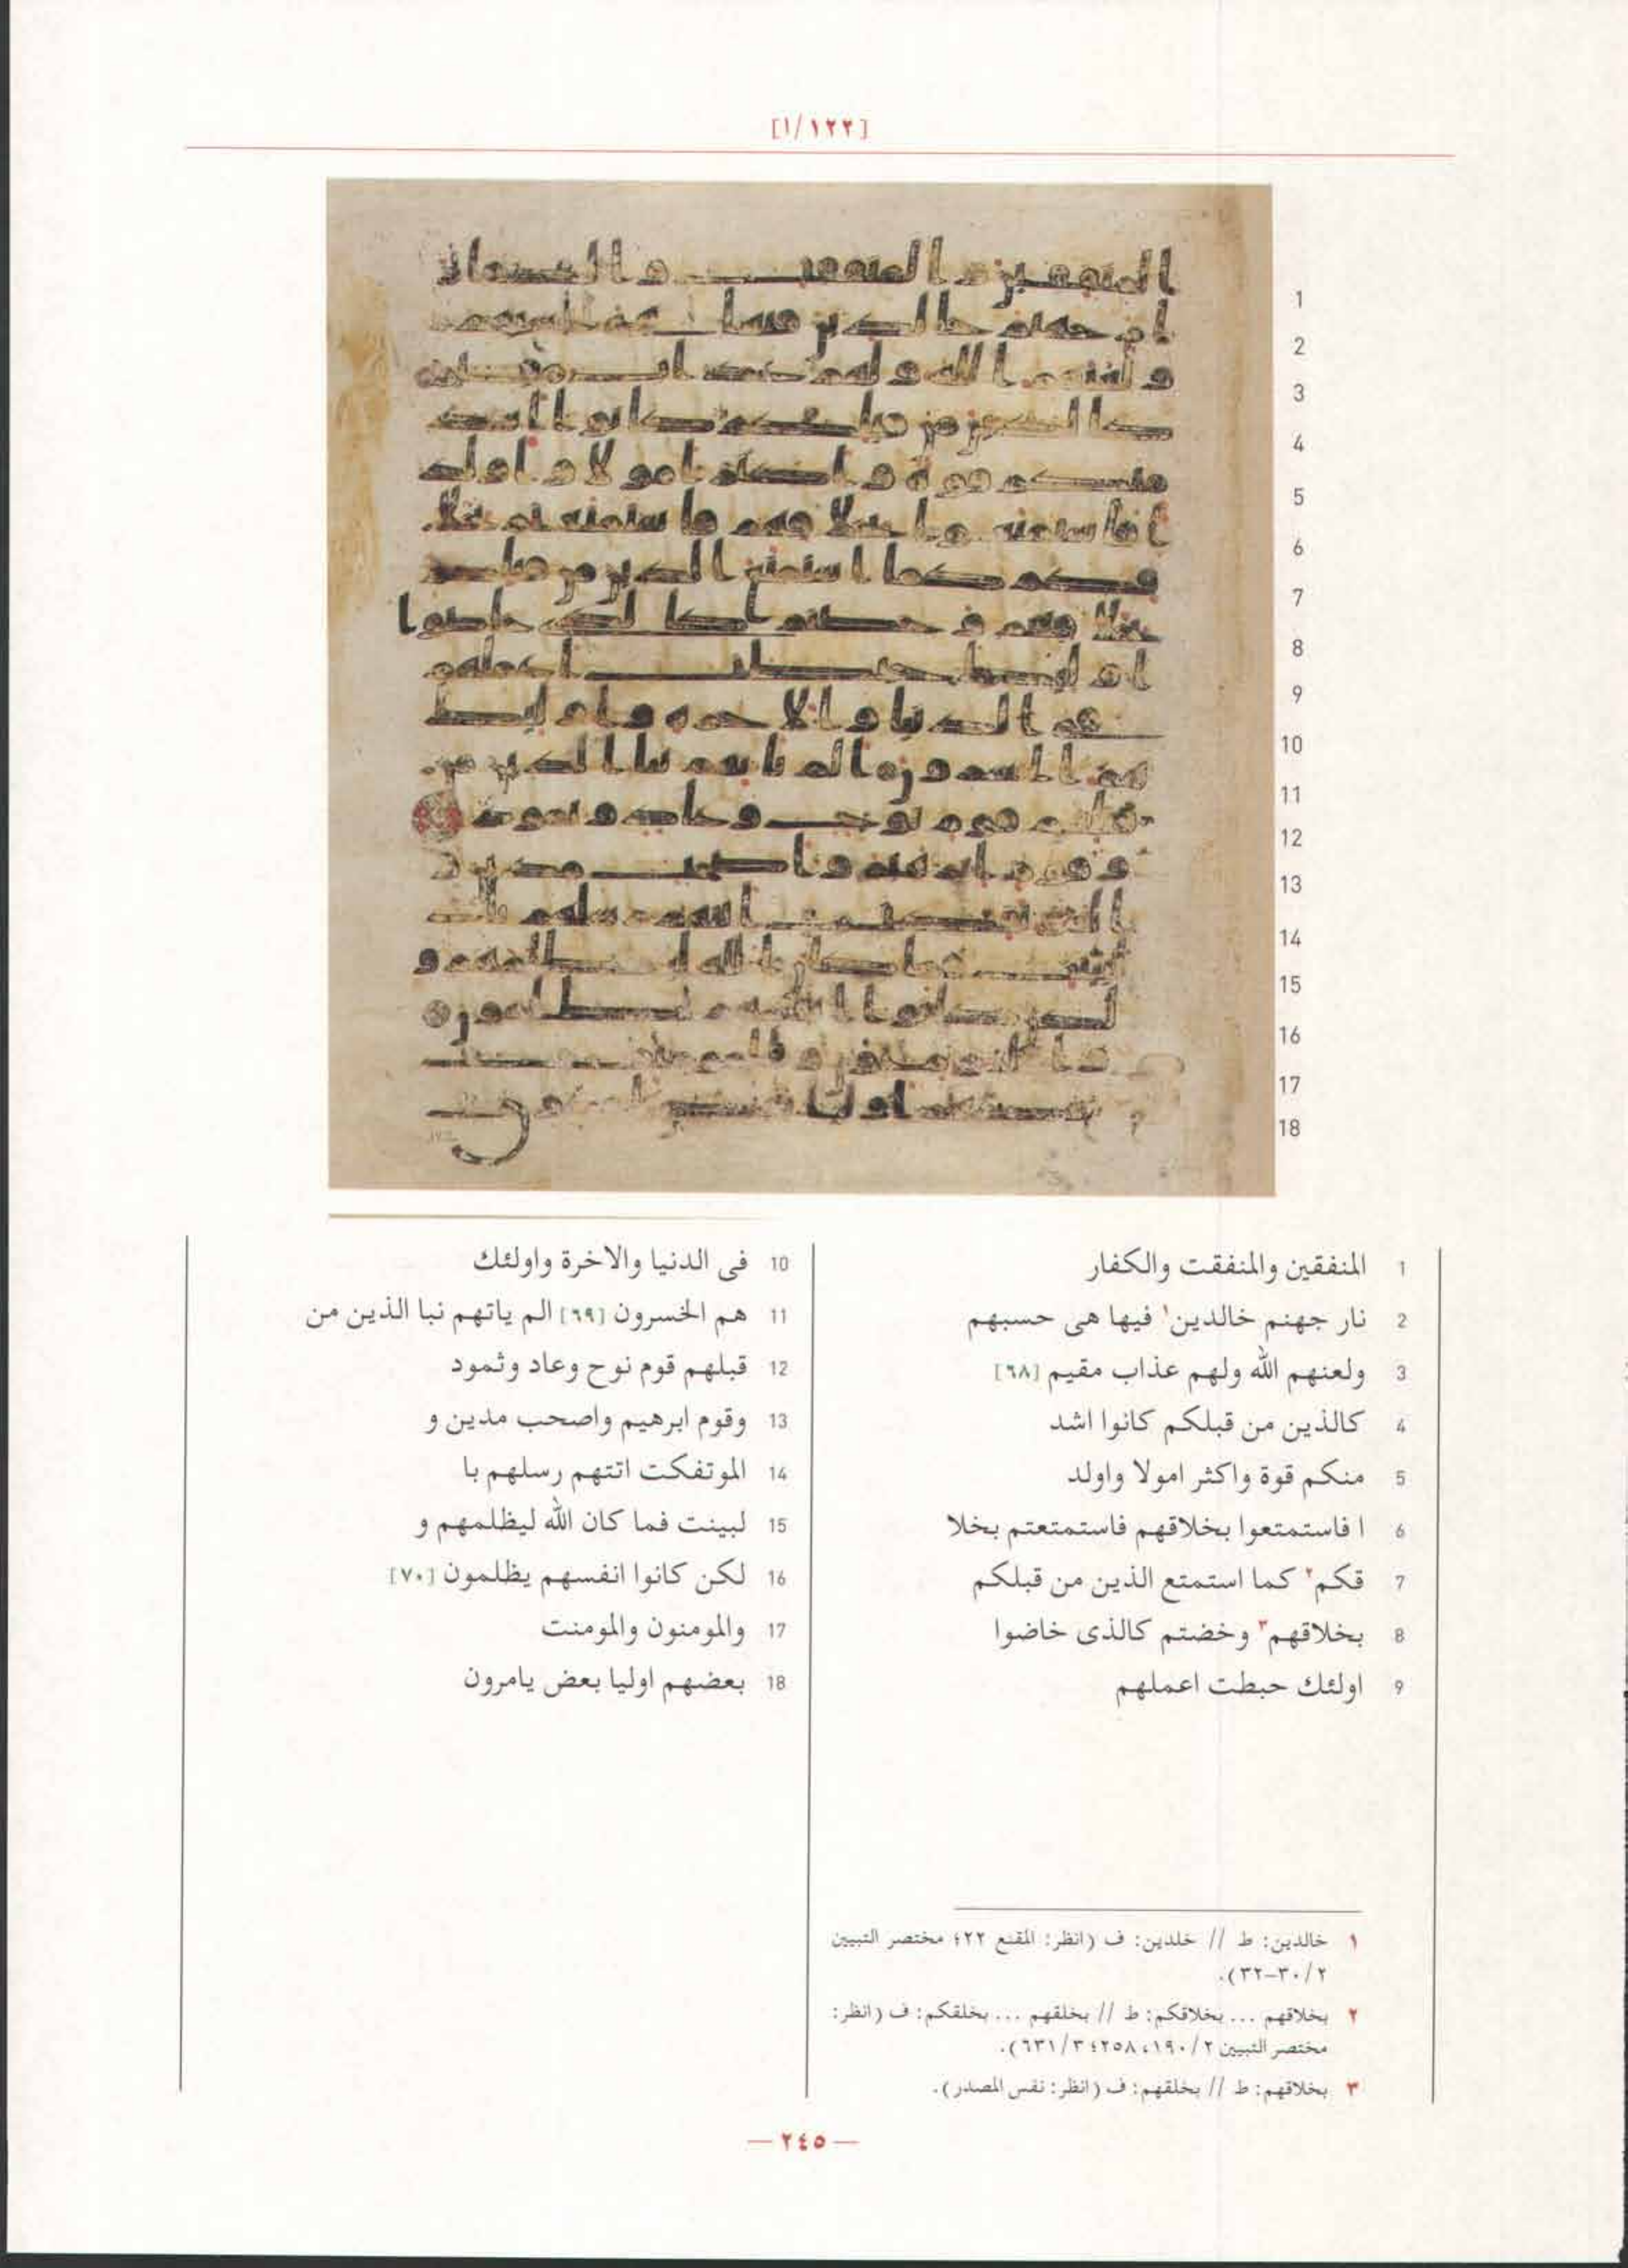 [١/١٢٢]
1 المنفقين والمنفقت والكفار
2 نار جهنم خالدين١ فيها هى حسبهم
3 ولعنهم الله ولهم عذاب مقيم [٦٨]
4 كالذين من قبلكم كانوا اشد
5 منكم قوة واكثر امولا واولد
6 ا فاستمتعوا بخلاقهم فاستمتعتم بخلا
7 قكم٢ كما استمتع الذين من قبلكم
8 بخلاقهم٣ وخضتم كالذى خاضوا
9 اولئك حبطت اعملهم
10 فى الدنيا والاخرة واولئك
11 هم الخسرون [٦٩] الم ياتهم نبا الذين من
12 قبلهم قوم نوح وعاد وثمود
13 وقوم ابرهيم واصحب مدين و
14 الموتفكت اتتهم رسلهم با
15 لبينت فما كان الله ليظلمهم و
16 لكن كانوا انفسهم يظلمون [٧٠]
17 والمومنون والمومنت
18 بعضهم اوليا بعض يامرون
١ خالدين: ط // خلدين: ف (انظر: المقنع ٢٢؛ مختصر التبيين
٢/ ٣٠-٣٢).
٢ بخلاقهم ... بخلاقكم: ط // بخلقهم ... بخلقكم: ف (انظر:
مختصر التبيين ٢/ ١٩٠، ٢٥٨؛ ٣/ ٦٣١).
٣ بخلاقهم: ط // بخلقهم: ف (انظر: نفس المصدر).
— ٢٤٥ —